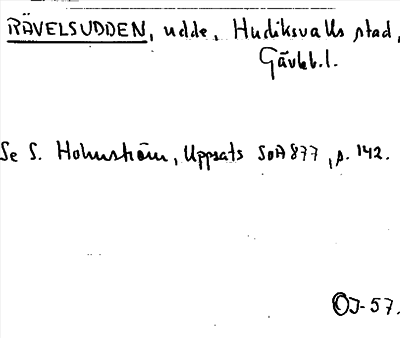 RÄVELSUDDEN, udde, Hudiksvalls stad,
Gävleb.l.
Se S. Holmström, Uppsats SOA 877, s. 142.
OJ-57.